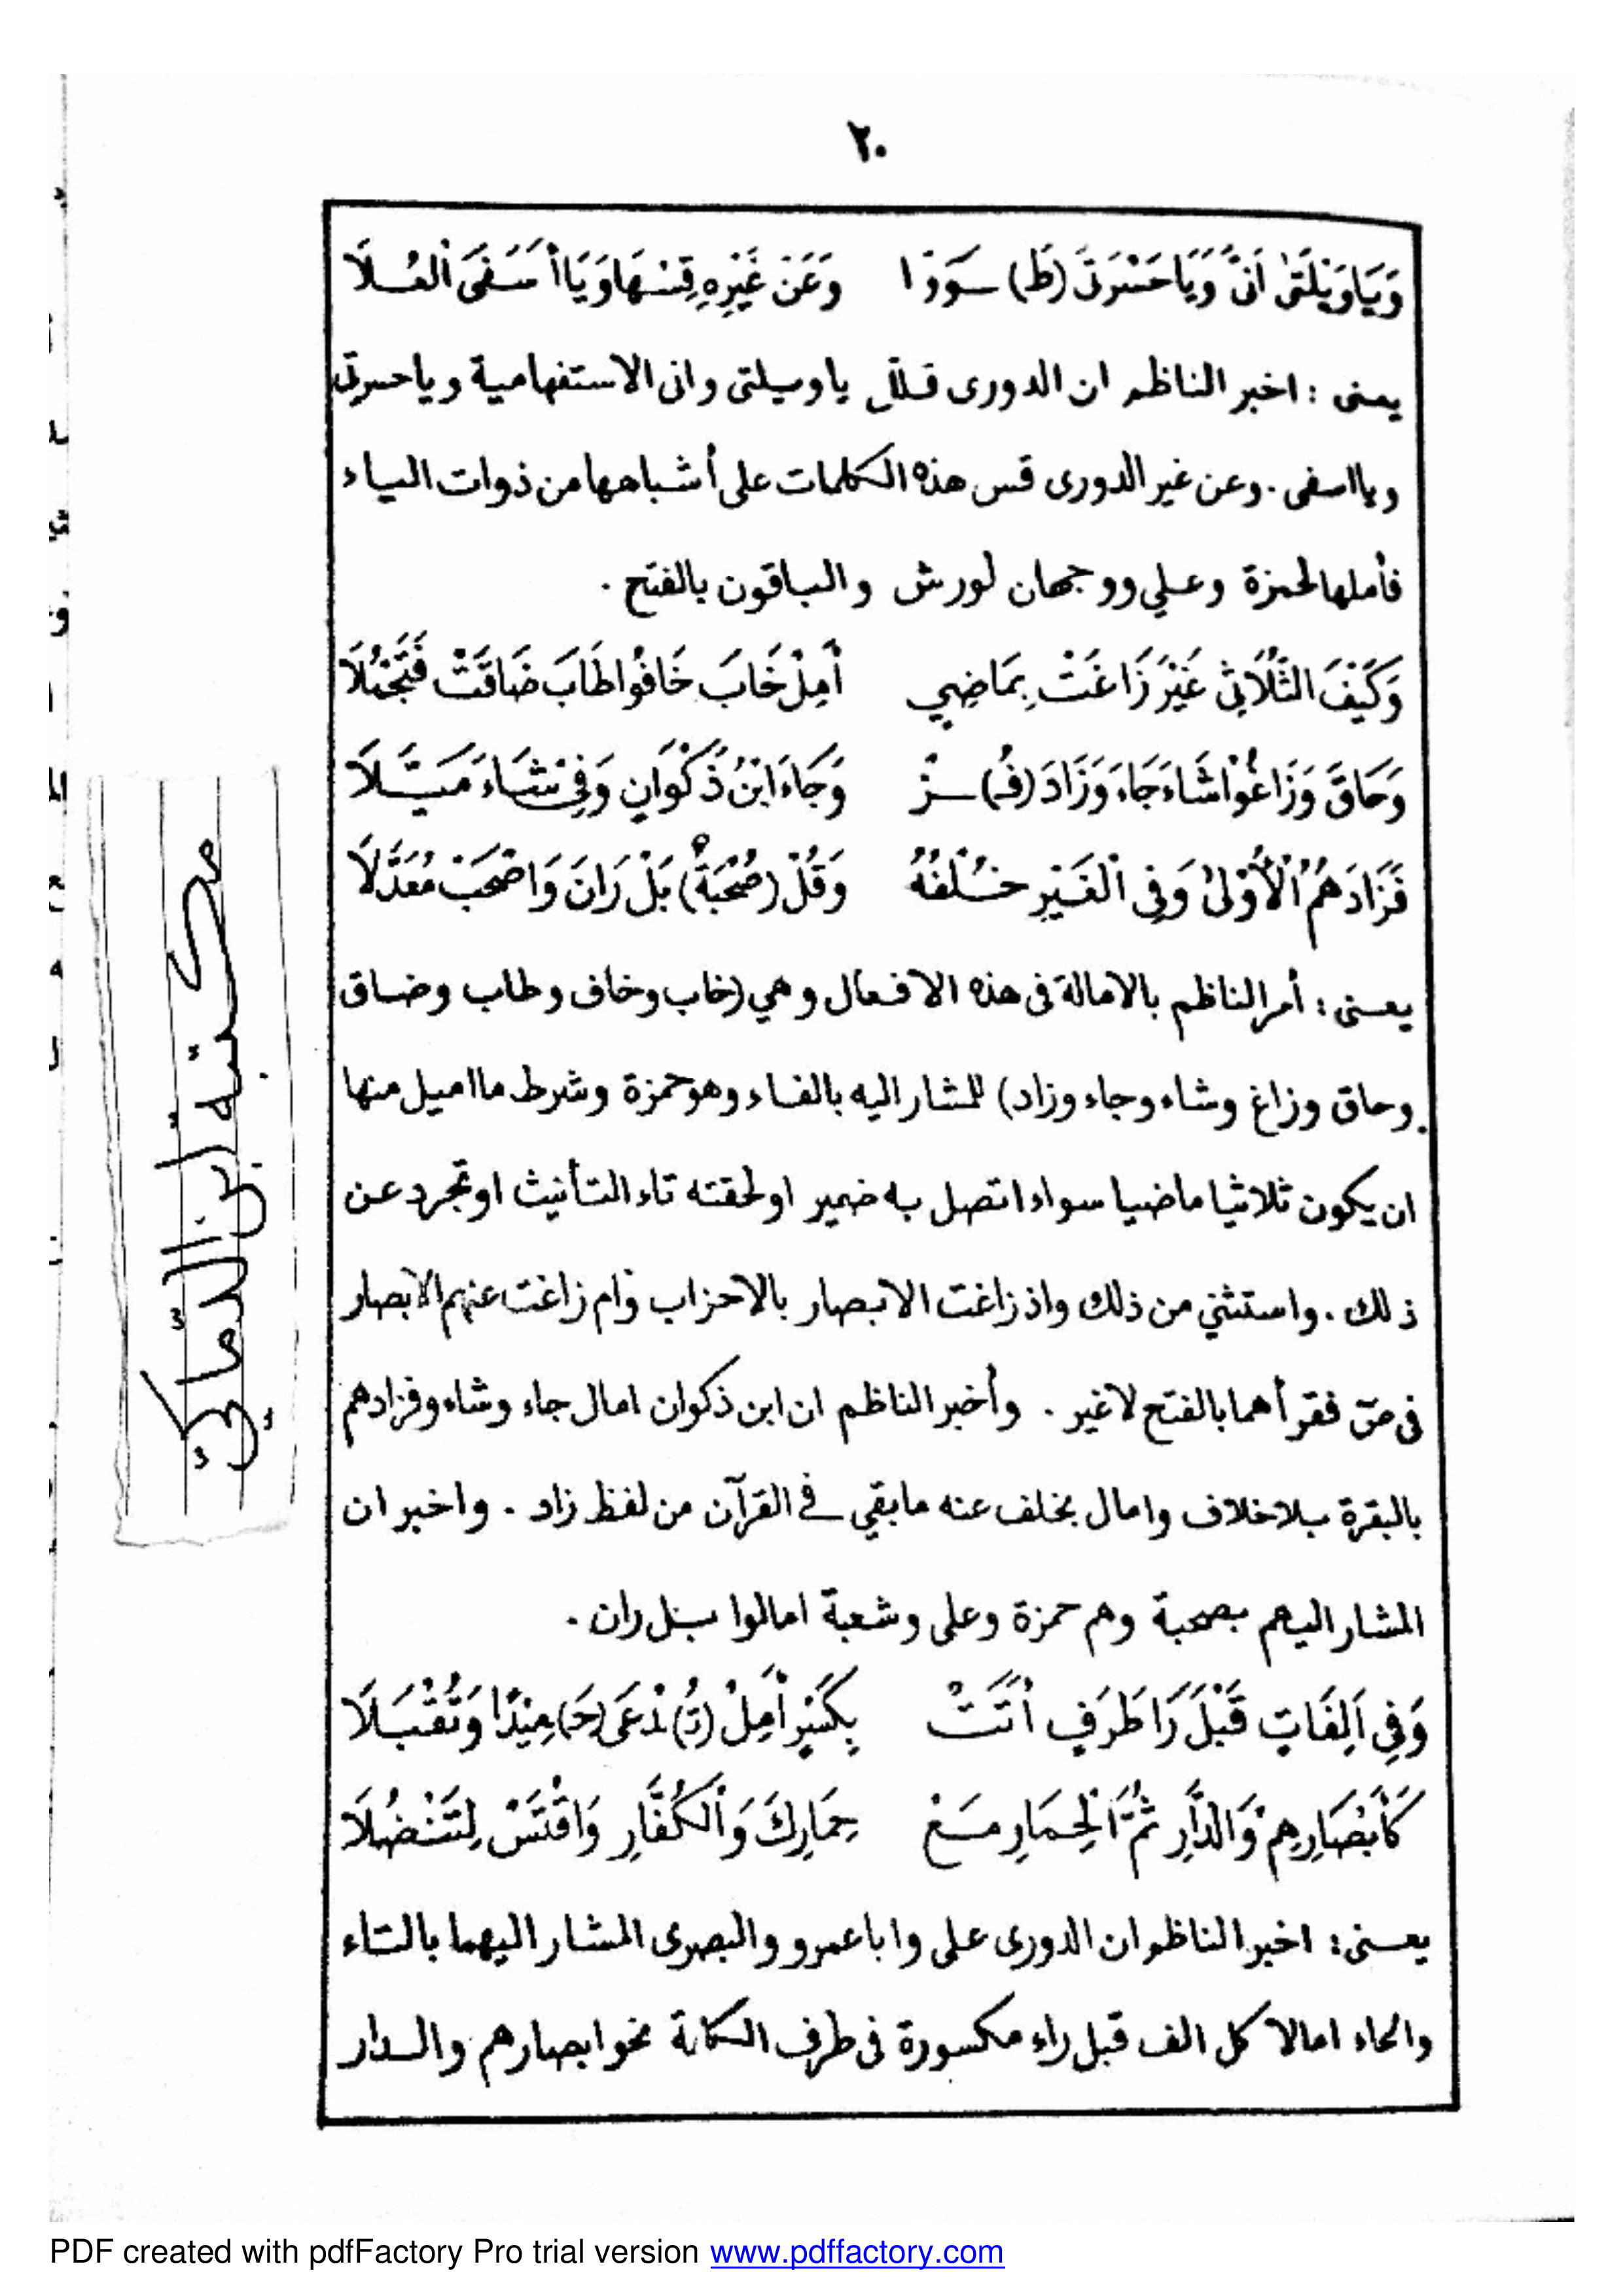 ٢٠
وَيَاوَيْلَتَىٰ اَنّىٰ وَيَا حَسْرَتَى (ط) ـوَوْا وَعَنْ غَيْرِهِ قِسْهَا وَيَا أَسَفَى الْعُلَا
يعنى : اخبر الناظم ان الدورى قلل ياويلتى وانى الاستفهامية وياحسرتى
ويااسفى . وعن غير الدورى قس هذه الكلمات على أشباهها من ذوات الياء
فأملها لحمزة وعلي ووجهان لورش والباقون بالفتح .
وَكَيْفَ الثُّلَاثِي غَيْرَ زَاغَتْ بِمَاضِيٍ أَمِلْ خَابَ خَافُوا طَابَ ضَاقَتْ فَتَجْمُلَا
وَحَاقَ وَزَاغُوْا شَاءَ جَاءَ وَزَادَ (فُ) ـزْ وَجَاءَ ابْنُ ذَكْوَانٍ وَفِىْ شَاءَ مَيَّلَا
فَزَادَهُمُ الْأُوْلَىٰ وَفِى الْغَيْرِ خُـلْفُهُ وَقُلْ (صُحْبَةٌ) بَلْ رَانَ وَاصْحَبْ مُعَدَّلَا
يعنى : أمر الناظم بالامالة فى هذه الافعال وهي (خاب وخاف وطاب وضاق
وحاق وزاغ وشاء وجاء وزاد) للمشار اليه بالفاء وهو حمزة وشرط مااميل منها
ان يكون ثلاثيا ماضيا سواء اتصل به ضمير او لحقته تاء التأنيث او تجرد عن
ذلك . واستثني من ذلك واذ زاغت الابصار بالاحزاب وٱم زاغت عنهم الابصار
فى صٓ فقرأهما بالفتح لاغير . وأخبر الناظم ان ابن ذكوان امال جاء وشاء وفزادهم
بالبقرة بلاخلاف وامال بخلف عنه مابقي في القرآن من لفظ زاد . واخبر ان
المشار اليهم بصحبة وهم حمزة وعلى وشعبة امالوا بل ران .
وَفِى اَلِفَاتٍ قَبْلَ رَا طَرَفٍ أَتَتْ بِكَسْرٍ أَمِلْ (تُ) ـدْعَى (حَ) ـمِيْدًا وَتُقْبَلَا
كَأَبْصَارِهِمْ وَالدَّارِ ثُمَّ الْحِمَارِ مَعْ حِمَارِكَ وَالْكُفَّارِ وَاقْتَسْ لِتَنْضُلَا
يعنى : اخبر الناظم ان الدورى على وابا عمرو والبصرى المشار اليهما بالتاء
والحاء امالا كل الف قبل راء مكسورة فى طرف الكلمة نحو ابصارهم والدار
PDF created with pdfFactory Pro trial version www.pdffactory.com